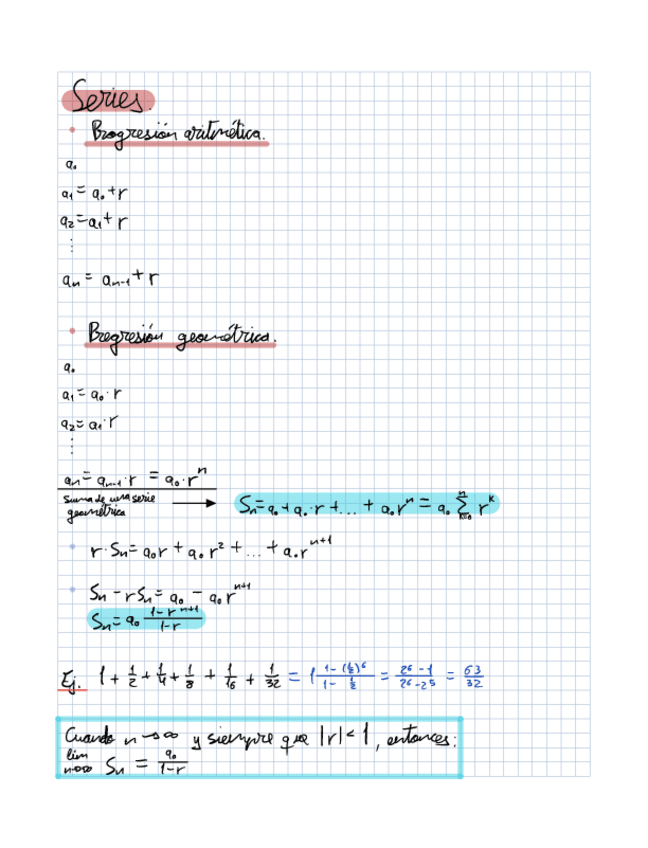 Series.
• Progresión aritmética.
a₀
a₁ = a₀ + r
a₂ = a₁ + r
⋮
aₙ = aₙ₋₁ + r
• Progresión geométrica.
a₀
a₁ = a₀ · r
a₂ = a₁ · r
⋮
aₙ = aₙ₋₁ · r = a₀ · rⁿ
Suma de una serie geométrica → Sₙ = a₀ + a₀ · r + ... + a₀ rⁿ = a₀ ∑ₖ₌₀ⁿ rᵏ
• r · Sₙ = a₀r + a₀r² + ... + a₀rⁿ⁺¹
• Sₙ - rSₙ = a₀ - a₀rⁿ⁺¹
Sₙ = a₀ (1 - rⁿ⁺¹)/(1 - r)
Ej. 1 + 1/2 + 1/4 + 1/8 + 1/16 + 1/32 = 1 (1 - (1/2)⁶)/(1 - 1/2) = (2⁶ - 1)/(2⁶ - 2⁵) = 63/32
Cuando n→∞ y siempre que |r| < 1, entonces:
lim n→∞ Sₙ = a₀/(1 - r)